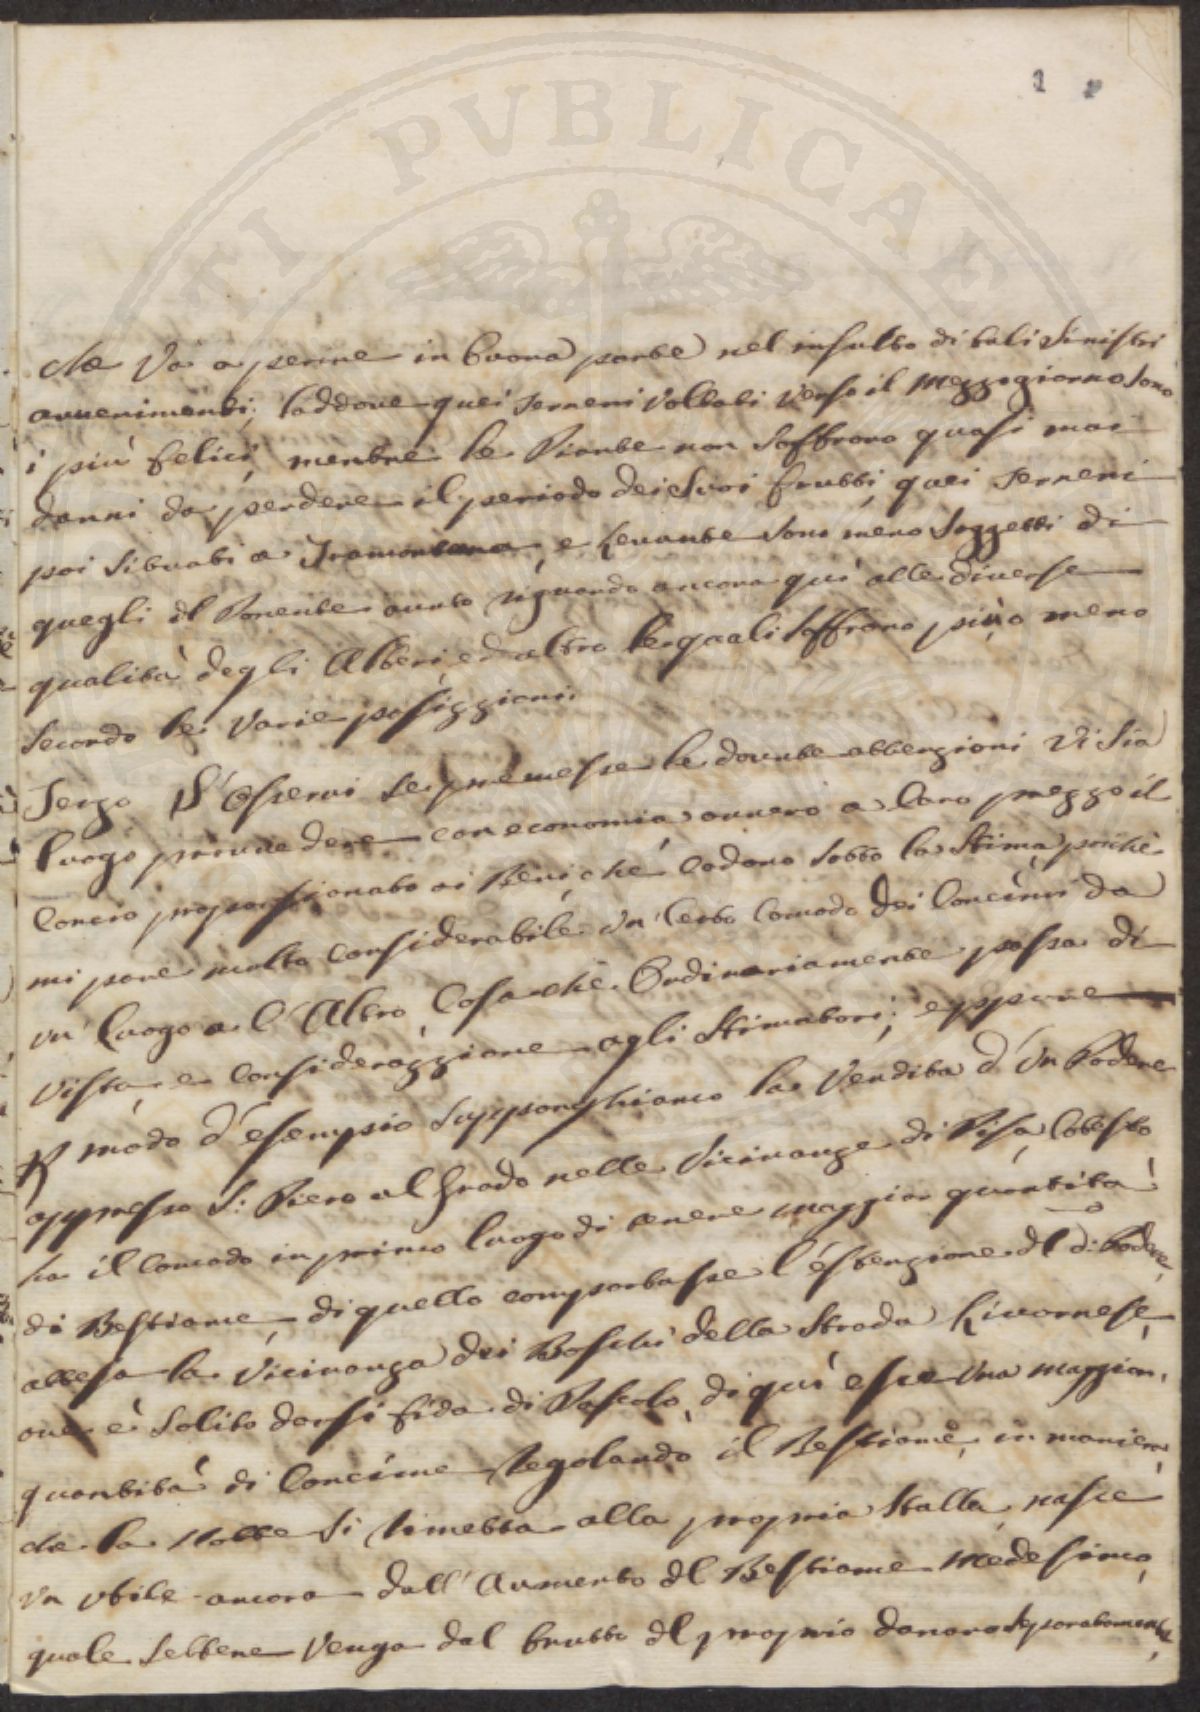 TI PVBLICAE
1
che Và a perire in buona parte nel insulto di tali Sinistri
avvenimenti; laddove quei Terreni Voltati Verso il Mezzogiorno Sono
i più felici, mentre le Piante non Soffrono quasi mai
danni da perdere il periodo dei Suoi frutti, quei Terreni
poi Situati a Tramontana, e Levante Sono meno Soggetti di
quegli dl Ponente avuto riguardo ancora quì alle diverse
qualità degli Alberi, ed altro le quali Soffrono più, o meno
Secondo le Varie posizzioni.
Terzo S'Osservi se premesse le dovute attenzioni Vi Sia
luogo provvedere con economia ovvero a Caro prezzo il
Concio proporzionato ai Beni che Cadano Sotto la Stima poichè
mi pare molto Considerabile un Certo Comodo dei Concimi da
un' luogo a l'Altro, Cosa che Ordinariamente passa di
Vista, e Considerazzione agli Stimatori; eppure
P modo d'esempio Supponghiamo la Vendita d'un Podere
appresso S: Piero al Grado nelle Vicinanze di Pisa, Cotesto
ha il Comodo in primo luogo di tenere maggior quantità
di Bestiame, di quello comportasse l'estenzione dl d:o Podere,
attesa la Vicinanza dei Boschi della Strada Livornese,
ove è Solito darsi fida di Pascolo, di quì esce Una maggior,
quantità di Concime Regolando il Bestiame, in maniera,
che la Notte Si rimetta alla propria Stalla, nasce
un utile ancora dall'Aumento dl Bestiame Medesimo,
quale Sebbene Venga dal frutto dl proprio danaro Separatamente,